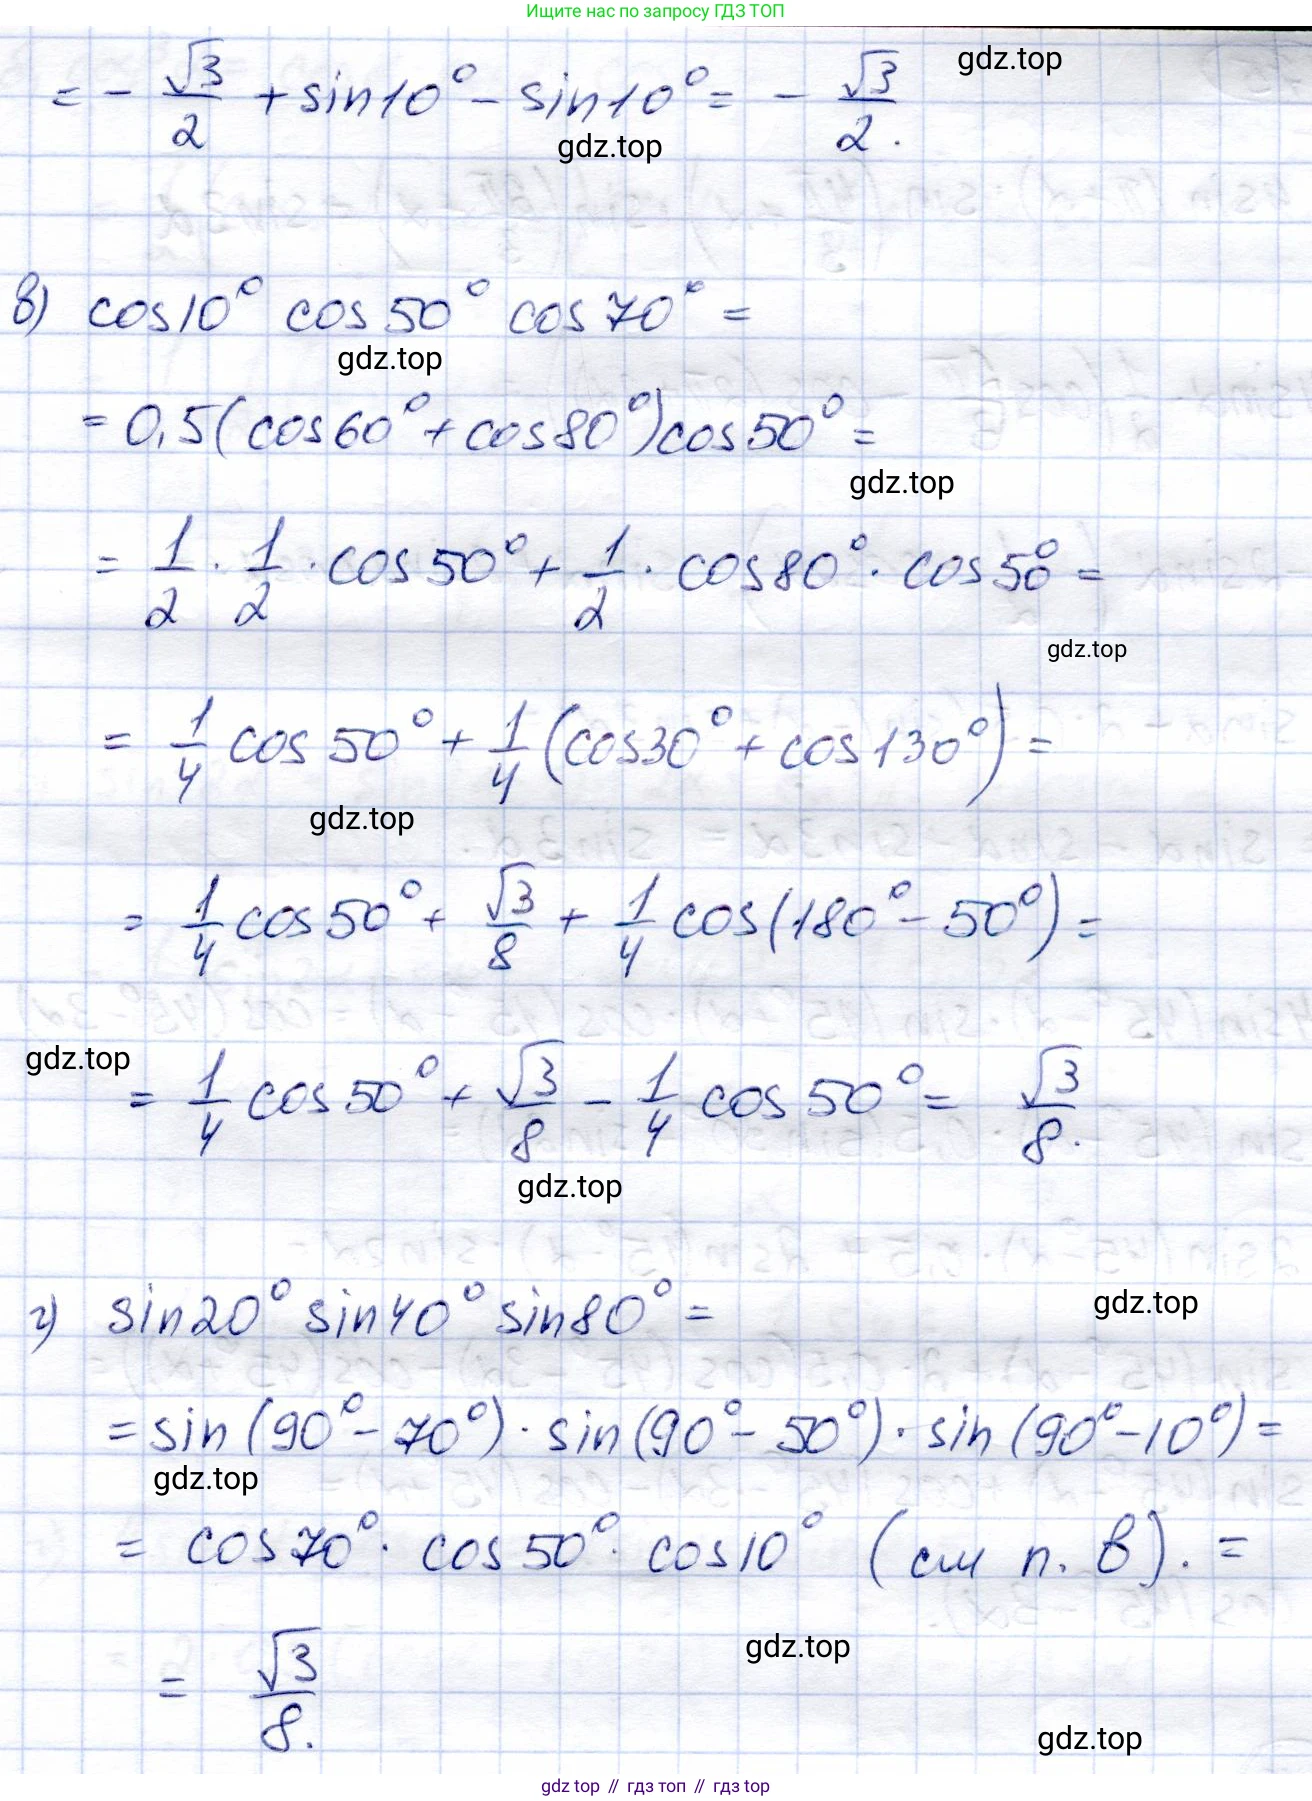 Ищите нас по запросу ГДЗ ТОП
gdz.top
= - √3/2 + sin10° - sin10° = - √3/2.
gdz.top
в) cos10° cos50° cos70° =
gdz.top
= 0,5(cos60° + cos80°)cos50° =
gdz.top
= 1/2 · 1/2 · cos50° + 1/2 · cos80° · cos50° =
gdz.top
= 1/4 cos50° + 1/4 (cos30° + cos130°) =
gdz.top
= 1/4 cos50° + √3/8 + 1/4 cos(180° - 50°) =
gdz.top
= 1/4 cos50° + √3/8 - 1/4 cos50° = √3/8.
gdz.top
г) sin20° sin40° sin80° =
gdz.top
= sin(90° - 70°) · sin(90° - 50°) · sin(90° - 10°) =
gdz.top
= cos70° · cos50° · cos10° (см п. в). =
gdz.top
= √3/8.
gdz.top
gdz top // гдз топ // гдз top